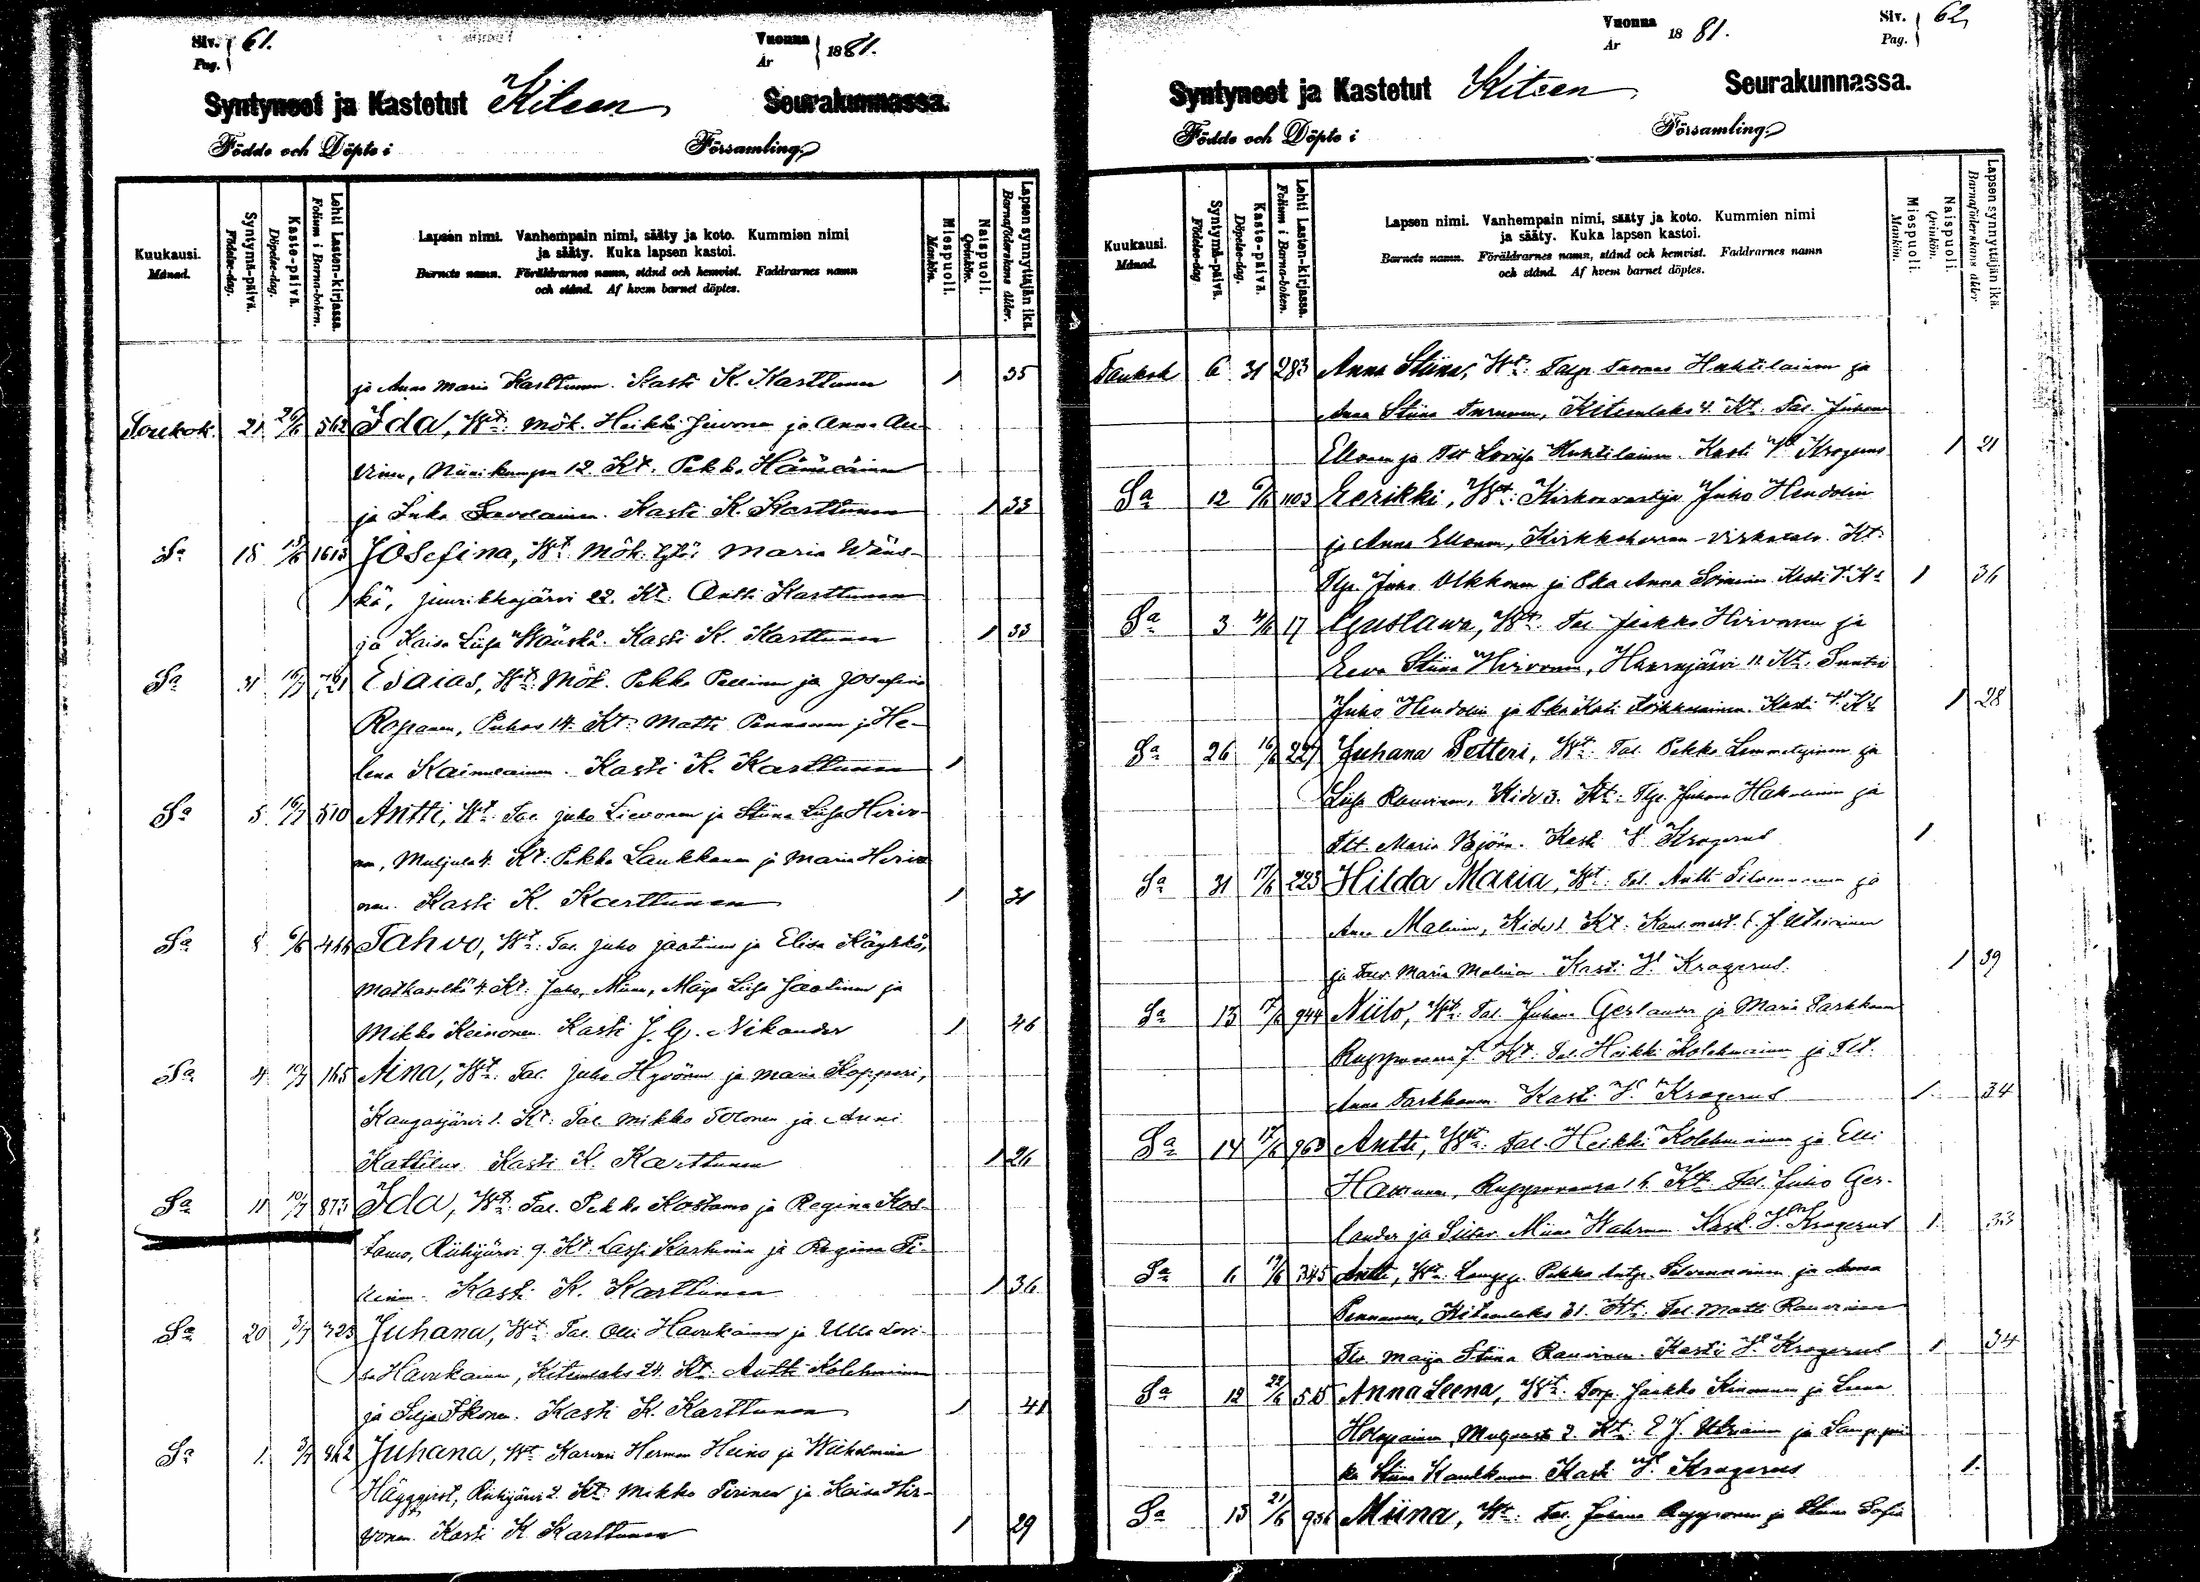 Siv. 61.
Pag.
Vuonna 1881.
År
Syntyneet ja Kastetut Kiteen Seurakunnassa.
Födde och Döpte i Församling.
Kuukausi.
Månad.
Syntymä-päivä.
Födelse-dag.
Kaste-päivä.
Döpelse-dag.
Lehti Lasten-kirjassa.
Folium i Barna-boken.
Lapsen nimi. Vanhempain nimi, sääty ja koto. Kummien nimi
ja sääty. Kuka lapsen kastoi.
Barnets namn. Föräldrarnes namn, stånd och hemvist. Faddrarnes namn
och stånd. Af hvem barnet döptes.
Miespuoli.
Mankön.
Naispuoli.
Qvinkön.
Lapsen synnyttäjän ikä.
Barnaföderskans ålder.
ja Anna Maria Karttunen. Kasti K. Karttunen 1 35
Toukok. 21 26/6 562 Ida, Wt: Mök. Heikki Juvonen ja Anna Au-
vinen, Niinikumpu 12. Kt. Pekka Hämäläinen
ja Inka Savolainen. Kasti K. Karttunen 1 33
Sa 18 1613 Josefina, Wt: Mök. Maria Wäns-
kä, Juurikkajärvi 22. Kt: Antti Karttunen
ja Kaisa Liisa Wänskä. Kasti K. Karttunen 1 33
Sa 31 16/7 721 Esaias, Wt: Mök. Pekka Pellinen ja Josefina
Ropanen, Puhos 14. Kt: Matti Pennanen ja He-
lena Kainulainen. Kasti K. Karttunen 1
Sa 5 16/7 510 Antti, Wt: Tal. Juho Lievonen ja Stiina Liisa Hirvo-
nen, Muljula 4. Kt: Pekka Laukkanen ja Maria Hirvo-
nen. Kasti K. Karttunen 1 31
Sa 8 6/6 Tahvo, Wt: Tal. Juho Jaatinen ja Elisa Käyhkö,
Matkaselkä 4. Kt: Juho, Miina, Maija Liisa Jaatinen ja
Mikko Keinonen. Kasti J. G. Nikander 1 46
Sa 4 10/7 165 Aina, Wt: Tal. Juho Hyvönen ja Maria Kopperi,
Kangasjärvi 1. Kt: Tal. Mikko Tolonen ja Anni
Kattilus. Kasti K. Karttunen 1 26
Sa 11 10/7 873 Ida, Wt: Tal. Pekka Kostamo ja Regina Kos-
tamo, Riihijärvi 9. Kt: Lassi Karhinen ja Regina Ti-
kinen. Kasti K. Karttunen 1 36
Sa 20 3/7 323 Juhana, Wt: Tal. Olli Havukainen ja Ulla Lovi-
sa Havukainen, Kiteenlaks 24. Kt: Antti Kolehmainen
ja Silja Ikonen. Kasti K. Karttunen 1 41
Sa 1. 3/7 862 Juhana, Wt: Karvari Herman Heino ja Wilhelmina
Häggqvist, Riihijärvi 2. Kt: Mikko Pirinen ja Kaisa Hir-
vonen. Kasti K. Karttunen 1 29
Siv. 62,
Pag.
Vuonna 1881.
År
Syntyneet ja Kastetut Kiteen Seurakunnassa.
Födde och Döpte i Församling.
Kuukausi.
Månad.
Syntymä-päivä.
Födelse-dag
Kaste-päivä.
Döpelse-dag.
Lehti Lasten-kirjassa.
Folium i Barna-boken.
Lapsen nimi. Vanhempain nimi, sääty ja koto. Kummien nimi
ja sääty. Kuka lapsen kastoi.
Barnets namn. Föräldrarnes namn, stånd och hemvist. Faddrarnes namn
och stånd. Af hvem barnet döptes.
Miespuoli.
Mankön.
Naispuoli.
Qvinkön.
Lapsen synnyttäjän ikä.
Barnaföderskans ålder
Toukok 6 31 283 Anna Stiina, Wt: Talp. Huhtilainen ja
Anna Stiina Turunen, Kiteenlaks 4. Kt: Tal. Juhana
Ellonen ja Tlt Lovisa Huhtilainen. Kasti V. Krogerus 1 21
Sa 12 6/6 1103 Eerikki, Wt: Kirkonvartija Juho Hendolin
ja Anna Ellonen, Kirkkoherran-virkatalo. Kt:
Tlp. Juho Olkkonen ja Pka Anna Soininen Kasti V. Ks 1 36
Sa 3 4/6 17 Gustawa, Wt: Tal. Jaakko Hirvonen ja
Eeva Stiina Hirvonen, Haarajärvi 11. Kt: Suntio
Juho Hendolin ja Pka Kati Kasti V. Ks 1 28
Sa 26 16/6 227 Juhana Petteri, Wt: Tal. Pekka Lemmetyinen ja
Liisa Rauvinen, Kide 3. Kt: Tlp. Juhana Hakulinen ja
Tlt. Maria Björn. Kasti V. Krogerus 1
Sa 31 17/6 223 Hilda Maria, Wt: Tal. Antti Silvennoinen ja
Anna Malinen, Kide 1 Kt: J. Utriainen
ja Maria Malinen Kasti V. Krogerus. 1 39
Sa 13 17/6 944 Niilo, Wt: Tal. Juhana Gerlander ja Maria Tarkkonen
Ruppovaara 7. Kt: Tal. Heikki Kolehmainen ja Tlt.
Anna Tarkkonen. Kasti V. Krogerus 1. 34
Sa 14 17/6 963 Antti, Wt: Tal. Heikki Kolehmainen ja Elli
Hassunen, Ruppovaara 16. Kt: Tal. Juho Ger-
lander ja Miina Kasti V. Krogerus 1. 33
Sa 6 19/6 345 Antti, Wt: Pekka Silvennoinen ja Anna
Pennanen, Kiteenlaks 31. Kt: Tal. Matti Rauvinen
Maija Stiina Rauvinen. Kasti V. Krogerus 1 34
Sa 12 22/6 515 Anna Leena, Wt: Torp. Jaakko Kinnunen ja Leena
Holopainen, 2. Kt: E. J. Utriainen ja
Stiina Kasti V. Krogerus 1.
Sa 13 21/6 936 Miina, Wt: Tal. Juhana Rupponen ja Sofia